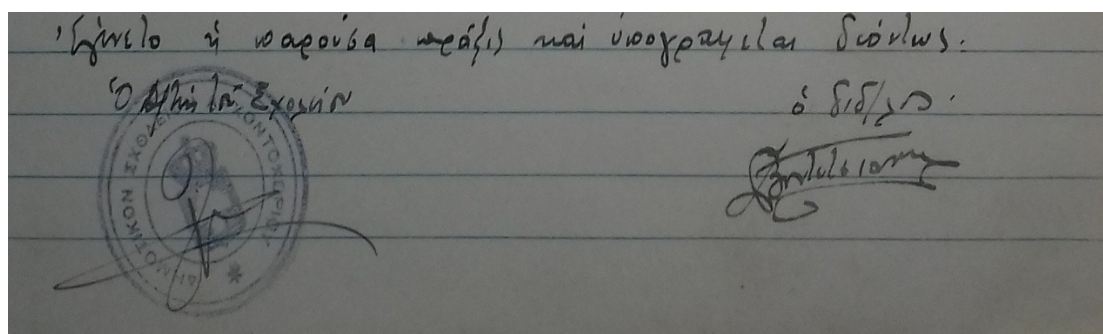 Ἐγένετο ἡ παροῦσα πρᾶξις καὶ ὑπογράφεται δεόντως.
Ὁ Δ/ντὴς τοῦ Σχολείου
ὁ διδ/λος.
ΔΗΜΟΤΙΚΟΝ ΣΧΟΛΕΙΟΝ